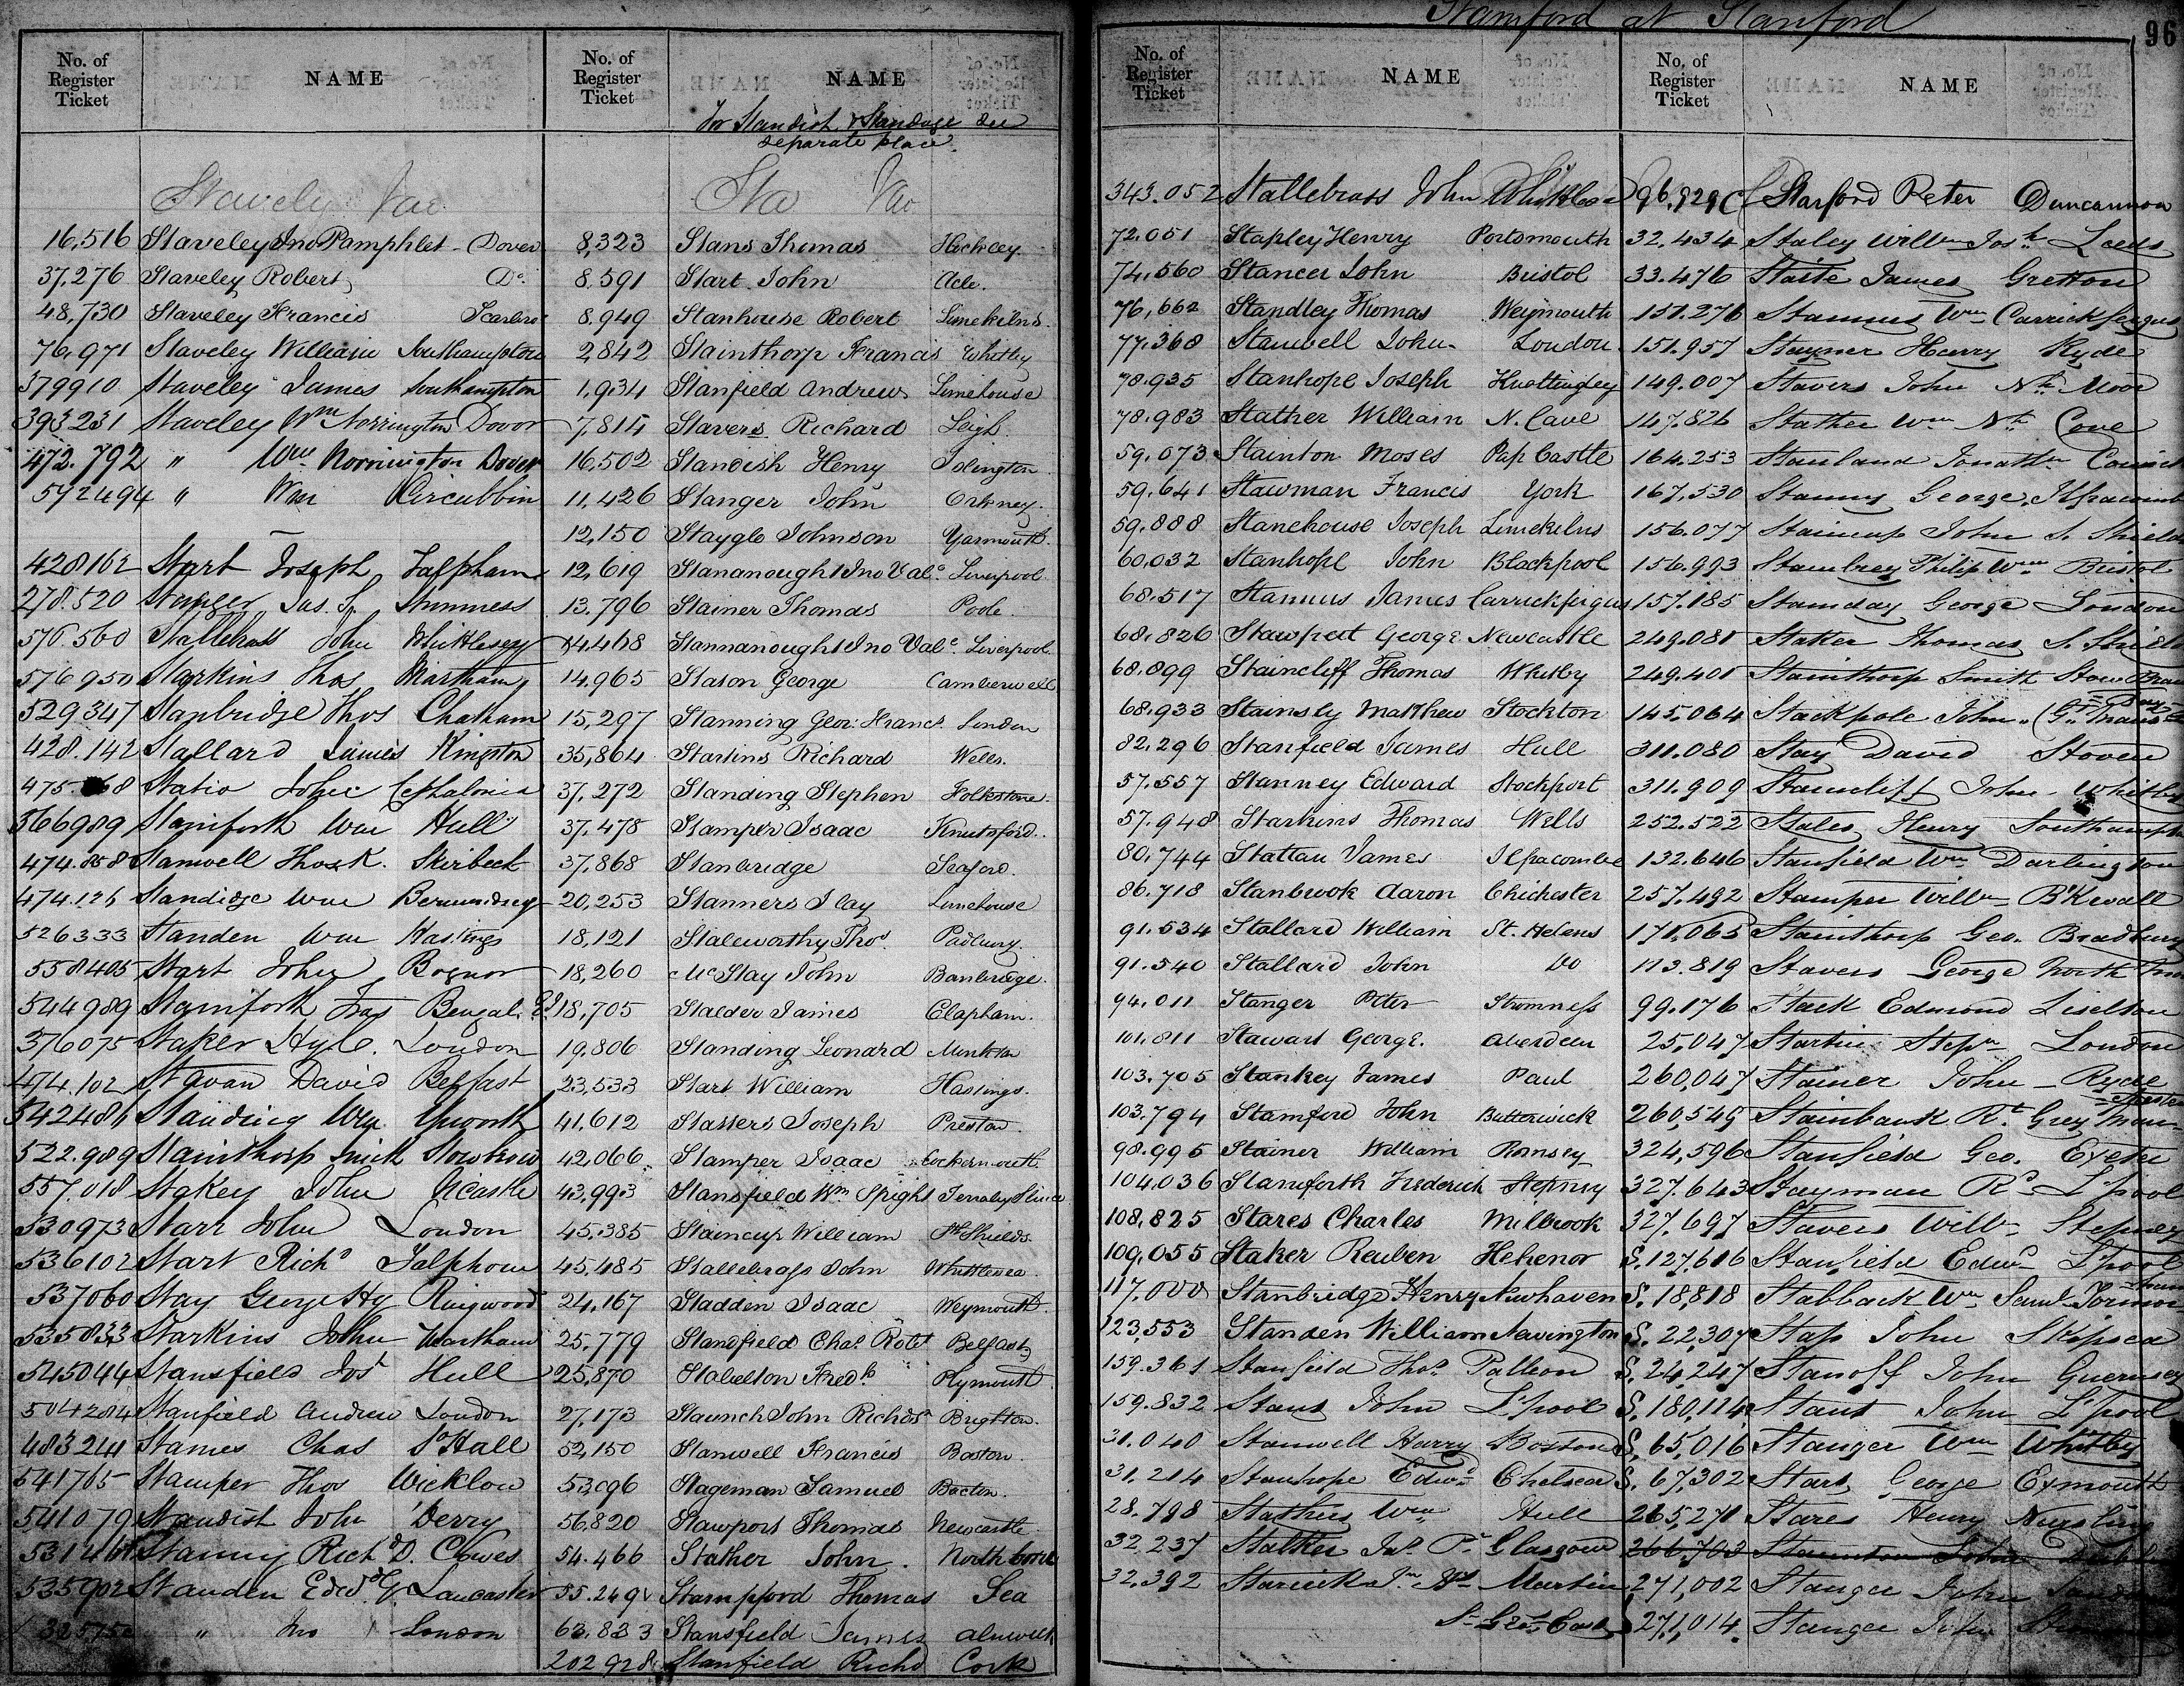 Stamford at Stanford
96
No. of Register Ticket NAME No. of Register Ticket NAME
For Standish & Standage see
separate place.
Staveley Var
16,516 Staveley Jno Pamphlet - Dover
37,276 Staveley Robert Do
48,730 Staveley Francis Scarbro
76,971 Staveley William Southampton
379910 Staveley James Southampton
393231 Staveley Wm Norrington Dover
472.792 " Wm Norrington Dover
592494 " Wm Circubbin
428162 Start Joseph Falpham
278.520 Stanger Jas. S. Stromness
576.560 Stallebrass John Whittlesey
576950 Starkins Thos Martham
529347 Stanbridge Thos Chatham
428.142 Stallard James Kingston
Statio John Cephalonia
566989 Staniforth Wm Hull
474.858 Stanwell Thos K. Skirbeck
474.126 Standidge Wm Bermondsey
526333 Standen Wm Hastings
558405 Start John Bognor
544989 Staniforth Fras Bengal.
376075 Staker Hy C. London
474.102 Stavan David Belfast
542486 Standing Wm
522.989 Stainthorp Smith
557,018 Stakey John NCastle
530973 Starr John London
536102 Start Richd Falpham
537060 Stay George Hy Ringwood
535833 Starkins John Martham
545044 Stansfield Jos Hull
504284 Stanfield Andrew London
483241 Stames Chas
541765 Stamper Thos Wicklow
541079 Standish John Derry
Stanny Richd D. Cowes
535902 Standen Edwd G. Lancaster
" Jno London
Sta Var
8,323 Stans Thomas Hackney.
8,591 Start John Acle.
8,949 Stanhouse Robert Limekilns.
2,842 Stainthorp Francis Whitby
1,934 Stanfield Andrew Limehouse
7,814 Stavers Richard Leigh.
16,502 Standish Henry Islington
11,426 Stanger John Orkney.
12,150 Staygle Johnson Yarmouth.
12,619 Stananought Jno Vale Liverpool
13,796 Stainer Thomas Poole.
14,468 Stannanought Jno Vale Liverpool.
14,965 Stason George Camberwell
15,297 Stanning Geo: Francs London
35,864 Starlins Richard Wells.
37,272 Standing Stephen Folkstone.
37,478 Stamper Isaac Knutsford.
37,868 Stanbridge Seaford.
20,253 Stanners Ilay Limehouse
18,121 Staleworthy Thos Padbury.
18,260 McStay John Banbridge.
18,705 Stalder James Clapham.
19,806 Standing Leonard
23,533 Start William Hastings.
41,612 Statters Joseph Preston.
42,066 Stamper Isaac Cockermouth
43,993 Stansfield Wm Spight
45,385 Staincup William Sth Shields.
45,485 Stallebrass John Whittlesea.
24,167 Stadden Isaac Weymouth.
25,779 Standfield Chas Robt Belfast
25,870 Stabelton Fredk Plymouth
27,173 Staunch John Richds Brighton.
52,150 Stanwell Francis Boston.
53,096 Stageman Samuel Bacton.
56,820 Stawport Thomas Newcastle.
54.466 Stather John. North Cove
55.249 Stampford Thomas Sea
63.833 Stansfield James Alnwick
202928 Stanfield Richd Cork
No. of Register Ticket NAME No. of Register Ticket NAME
343.052 Stallebrass John Whittlesea
72.051 Stapley Henry Portsmouth
74,560 Stancer John Bristol
76,662 Standley Thomas Weymouth
77.368 Stanwell John London
78.935 Stanhope Joseph Knottingley
78.983 Stather William N. Cave
59.073 Stainton Moses Pap Castle
59.641 Stawman Francis York
59.888 Stanehouse Joseph Limekilns
60,032 Stanhope John Blackpool
68.517 Stannus James Carrickfergus
68.826 Stawpert George Newcastle
68.899 Staincliff Thomas Whitby
68.933 Stainsly Matthew Stockton
82.296 Stanfield James Hull
57.557 Stanney Edward Stockport
57.948 Starkins Thomas Wells
80,744 Stattan James Ilfracombe
86.718 Stanbrook Aaron Chichester
91.534 Stallard William St. Helens
91.540 Stallard John Do
94.011 Stanger Peter Stromness
101.811 Stewart George. Aberdeen
103.705 Stankey James Paul
103.794 Stamford John Butterwick
98.995 Stainer William Romsey
104.036 Staniforth Frederick Stepney
108.825 Stares Charles Milbrook
109,055 Staker Reuben
117,000 Stanbridge Henry Newhaven
123,553 Standen William Newington
159.361 Stanfield Thos.
159.832 Stans John L'pool
31.040 Stanwell Harry Boston
31.214 Stanhope Edwd Chelsea
28.798 Stathers Wm Hull
32.237 Stalker Jas. Glasgow
32.392 Martin
96,929 Stanford Peter Duncannon
32.434 Staley Willm Josh Leeds
33.476 Staite James Gretton
151.276 Stannus Wm Carrickfergus
151.957 Stayner Harry Ryde
149.007 Stavers John
147.826 Stather Wm Nth Cove
164.253 Stanland Jonathn
167.530 Stanny George, Ilfracomb
156.077 Staincup John S. Shields
156.993 Stanbrey Philip Wm Bristol
157.185 Stanaday George London
249.081 Staker Thomas S. Shields
249.401 Stainthorp Smith
145,064 Stackpole John
311.080 Stay David Stoven
311.909 Stancliff John Whitby
252.522 Stales Henry Southampton
132.646 Stanfield Wm Darlington
257.492 Stamper Willm B'Kwall
171,065 Stainthorp Geo. Bradbury
113.819 Stavers George North
99.176 Stack Edmond Liselton
25,047 Startin Stepn London
260,047 Stainer John - Ryde
260,545 Stainbank Rt
324,596 Stanfield Geo. Exeter
327.643 Stayman Rd L'pool
327.697 Stavers Willm Stepney
S.127,616 Stanfield Edwd L'pool
S.18,818 Stabback Wm Saml
S.22,307 Stap John Skipsea
S.24,247 Stanoff John Guernsey
S.180,114 Stans John L'pool
S.65,016 Stanger Wm Whitby
S.67,302 Start George Exmouth
265,271 Stares Henry Nursling
266,703 Staunton John Dublin
271,002 Stanger John
271,014. Stanger John